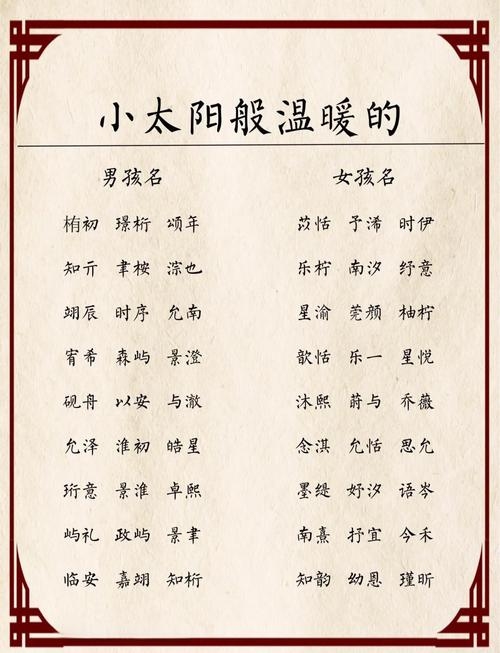 小太阳般温暖的
男孩名 女孩名
栯初 璟桁 颂年 苡恬 予浠 时伊
知亓 聿桉 淙也 乐柠 南汐 纾意
翊辰 时序 允南 星渝 莞颜 柚柠
宥希 森屿 景澄 歆恬 乐一 星悦
砚舟 以安 与澈 沐熙 蔚与 乔薇
允泽 淮初 皓星 念淇 允恬 思允
珩意 景淮 卓熙 墨缇 妤汐 语岑
屿礼 政屿 景聿 南熹 抒宜 今禾
临安 嘉翊 知桁 知韵 幼恩 瑾昕